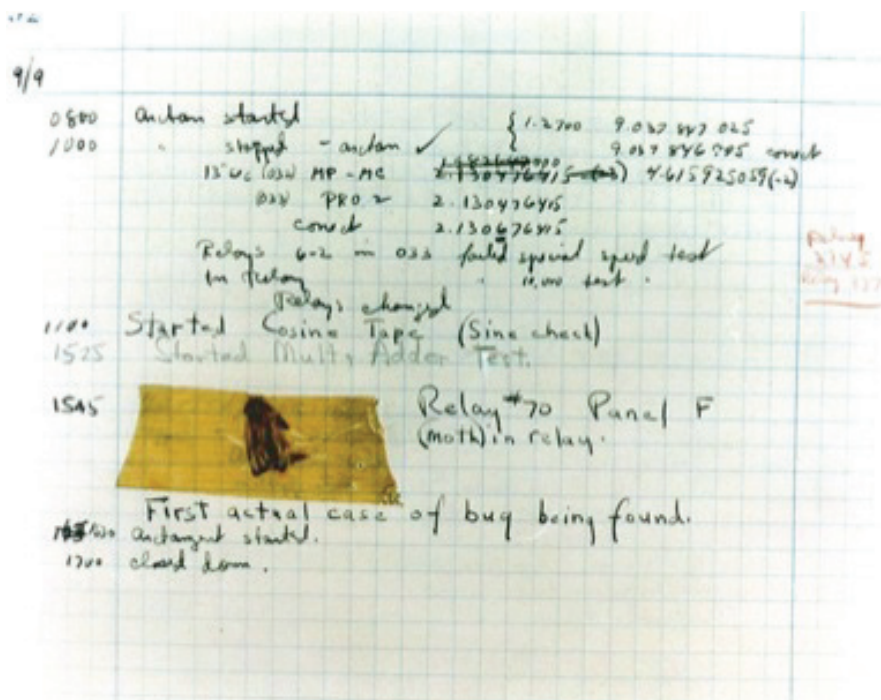 9/9
0800 antan started { 1.2700 9.037 847 025
1000 " stopped - antan ✓ 9.037 846 795 correct
13"uc (032) MP - MC 4.615925059(-2)
(033) PRO 2 2.130476415
correct 2.130676415
Relays 6-2 in 033 failed special speed test
in relay " 10.000 test .
Relays changed
1100 Started Cosine Tape (Sine check)
1525 Started Mult + Adder Test.
1545 Relay #70 Panel F
(moth) in relay.
First actual case of bug being found.
1630 antangent started.
1700 closed down.
Relay
2145
Relay